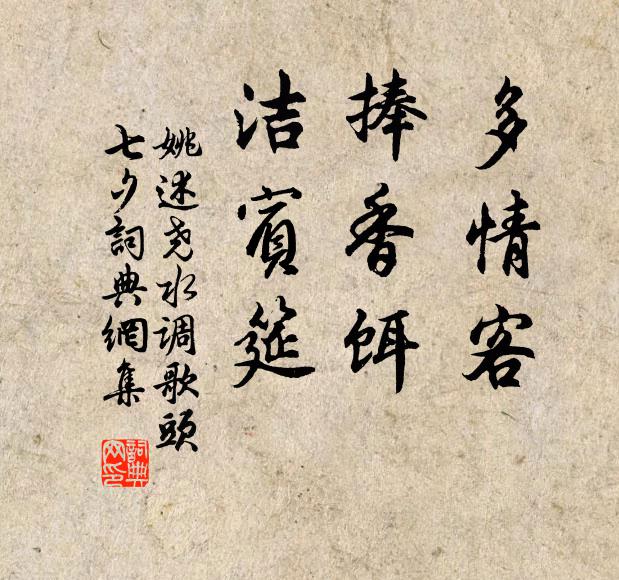 多情客
捧香饵
洁宾筵
姚述尧水调歌头
七夕詞典網集
詞典
网印